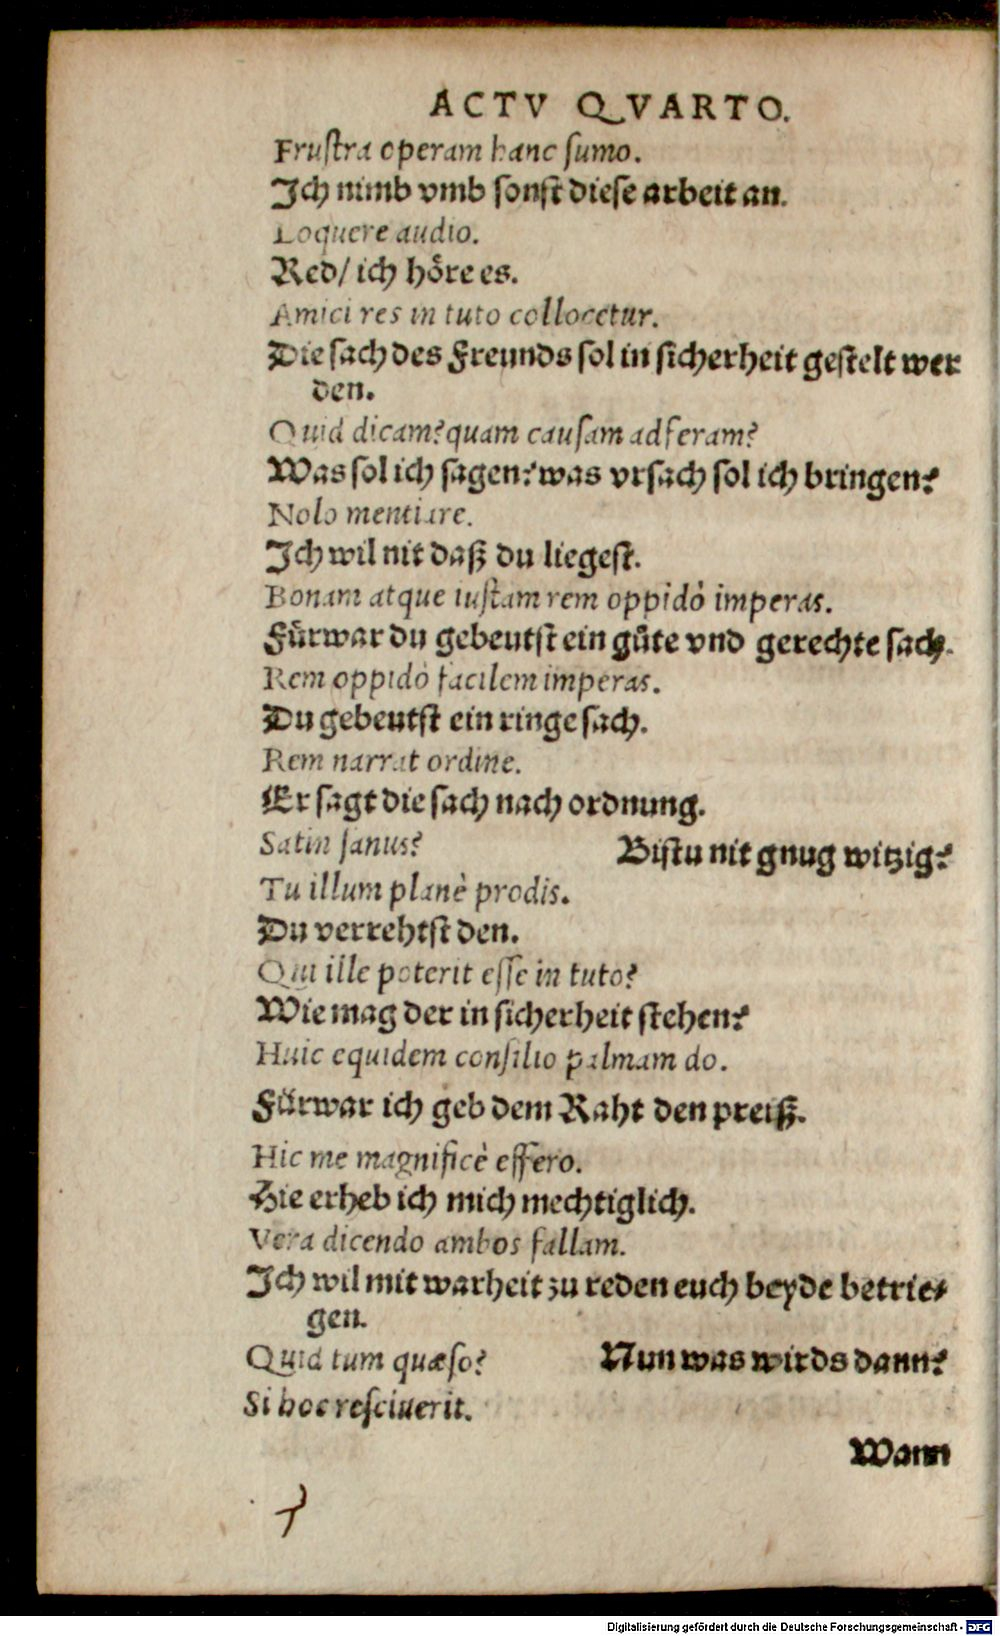 ACTV QVARTO.
Frustra operam hanc sumo.
Ich nimb vmb sonst diese arbeit an.
Loquere audio.
Red/ ich höre es.
Amici res in tuto collocetur.
Die sach des Freunds sol in sicherheit gestelt wer
den.
Quid dicam? quam causam adferam?
Was sol ich sagen? was vrsach sol ich bringen?
Nolo mentiare.
Ich wil nit daß du liegest.
Bonam atque iustam rem oppidò imperas.
Fürwar du gebeutst ein gůte vnd gerechte sach.
Rem oppidò facilem imperas.
Du gebeutst ein ringe sach.
Rem narrat ordine.
Er sagt die sach nach ordnung.
Satin sanus? Bistu nit gnug witzig?
Tu illum planè prodis.
Du verrehtst den.
Qui ille poterit esse in tuto?
Wie mag der in sicherheit stehen?
Huic equidem consilio palmam do.
Fürwar ich geb dem Raht den preiß.
Hic me magnificè effero.
Hie erheb ich mich mechtiglich.
Vera dicendo ambos fallam.
Ich wil mit warheit zu reden euch beyde betrie-
gen.
Quid tum quæso? Nun was wirds dann?
Si hoc resciuerit.
Wann
Digitalisierung gefördert durch die Deutsche Forschungsgemeinschaft - DFG